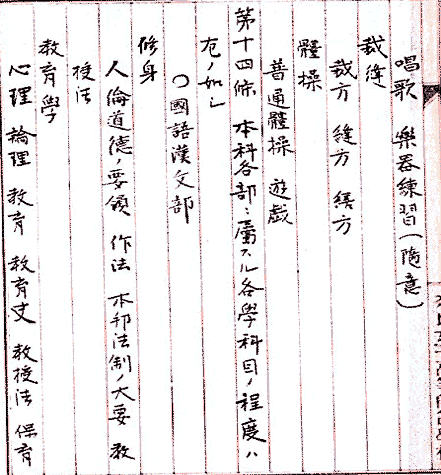 唱歌 樂器練習(隨意)
裁縫
裁方 縫方 繕方
體操
普通體操 遊戯
第十四條 本科各部ニ屬スル各學科目ノ程度ハ
左ノ如シ
○國語漢文部
修身
人倫道德ノ要領 作法 本邦法制ノ大要 教
授法
教育學
心理 論理 教育 教育史 教授法 保育